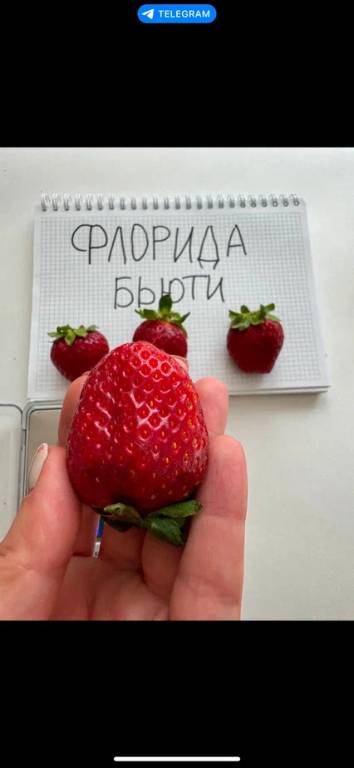 TELEGRAM
ФЛОРИДА
БЬЮТИ